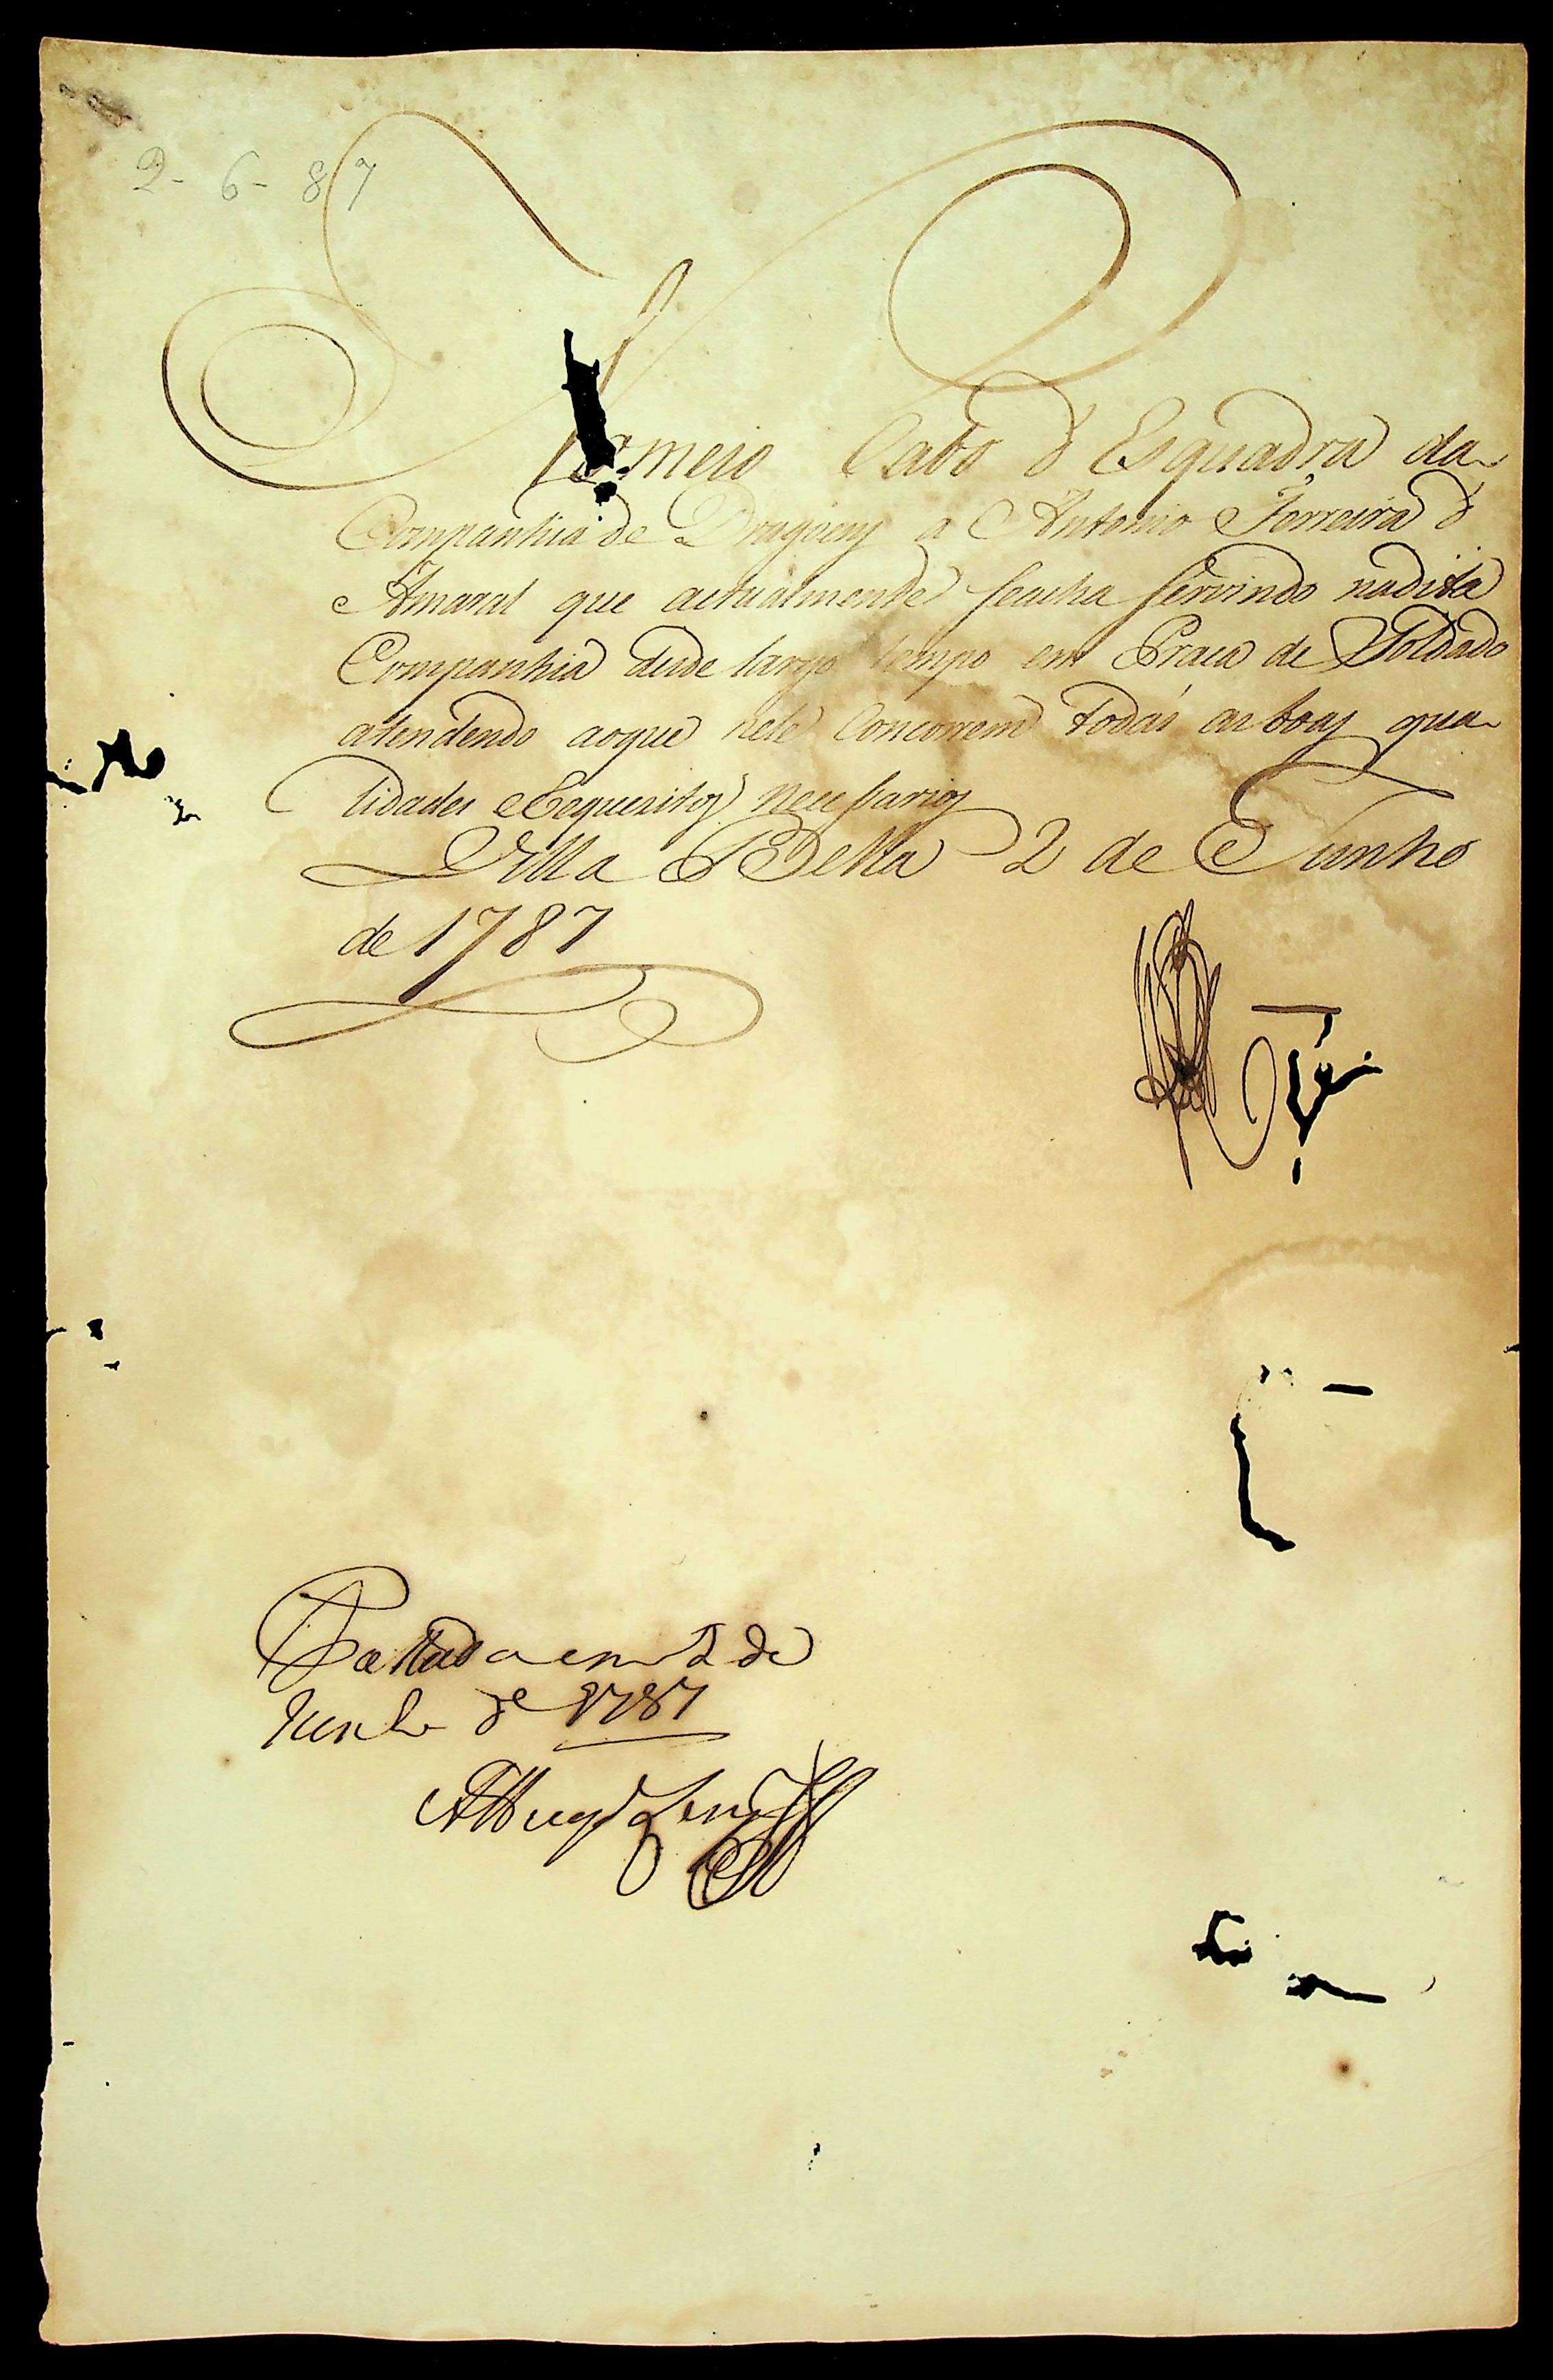 2-6-87
Nomeio Cabo d' Esquadra da
Companhia de Dragoens a Antonio Ferreira d'
Amaral que actualmente seacha servindo nadita
Companhia desde largo tempo em Praca de Soldado
atendendo aoque nele Concorrem todas as boas qua
lidades e Requezitos necessarios
Villa Bella 2 de Junho
de 1787
em 2 de
Junho de 1787